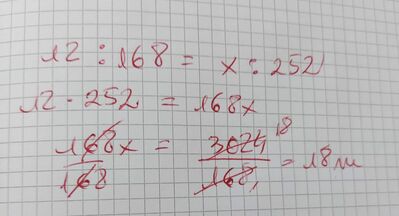 12 : 168 = x : 252
12 · 252 = 168x
168x/168 = 3024/168 18/1 = 18 m